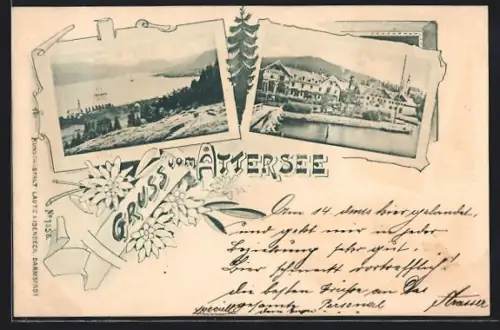 GRUSS vom ATTERSEE
KUNSTANSTALT LAUTZ & ISENBECK, DARMSTADT
No 158.
Am 14. dieses hier gelandet,
und geht mir in jeder
Beziehung sehr gut.
Bier schmeckt vortrefflich!
die besten Grüße an das
gesamte Personal
speciell
Strasser